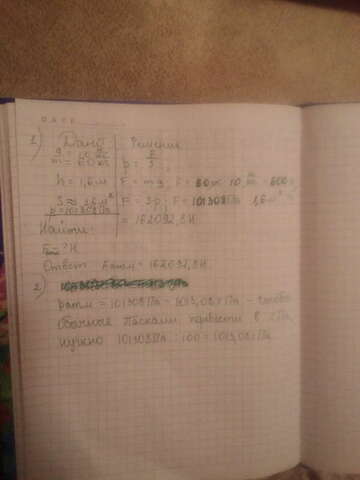 DATE
1) Дано Решение
g = 10 Н/кг
m = 60 кг p = F/S
h = 1,6 м F = mg, F = 60 кг · 10 Н/кг = 600
S ≈ 1,6 м² F = Sp, F = 101308 Па · 1,6 м²
p = 101308 Па = 162092,8 Н
Найти:
Fатм - ? Н
Ответ: Fатм = 162092,8 Н
2)
pатм = 101308 Па = 1013,08 гПа - чтобы
обычные Паскали перевести в гПа,
нужно 101308 Па : 100 = 1013,08 гПа